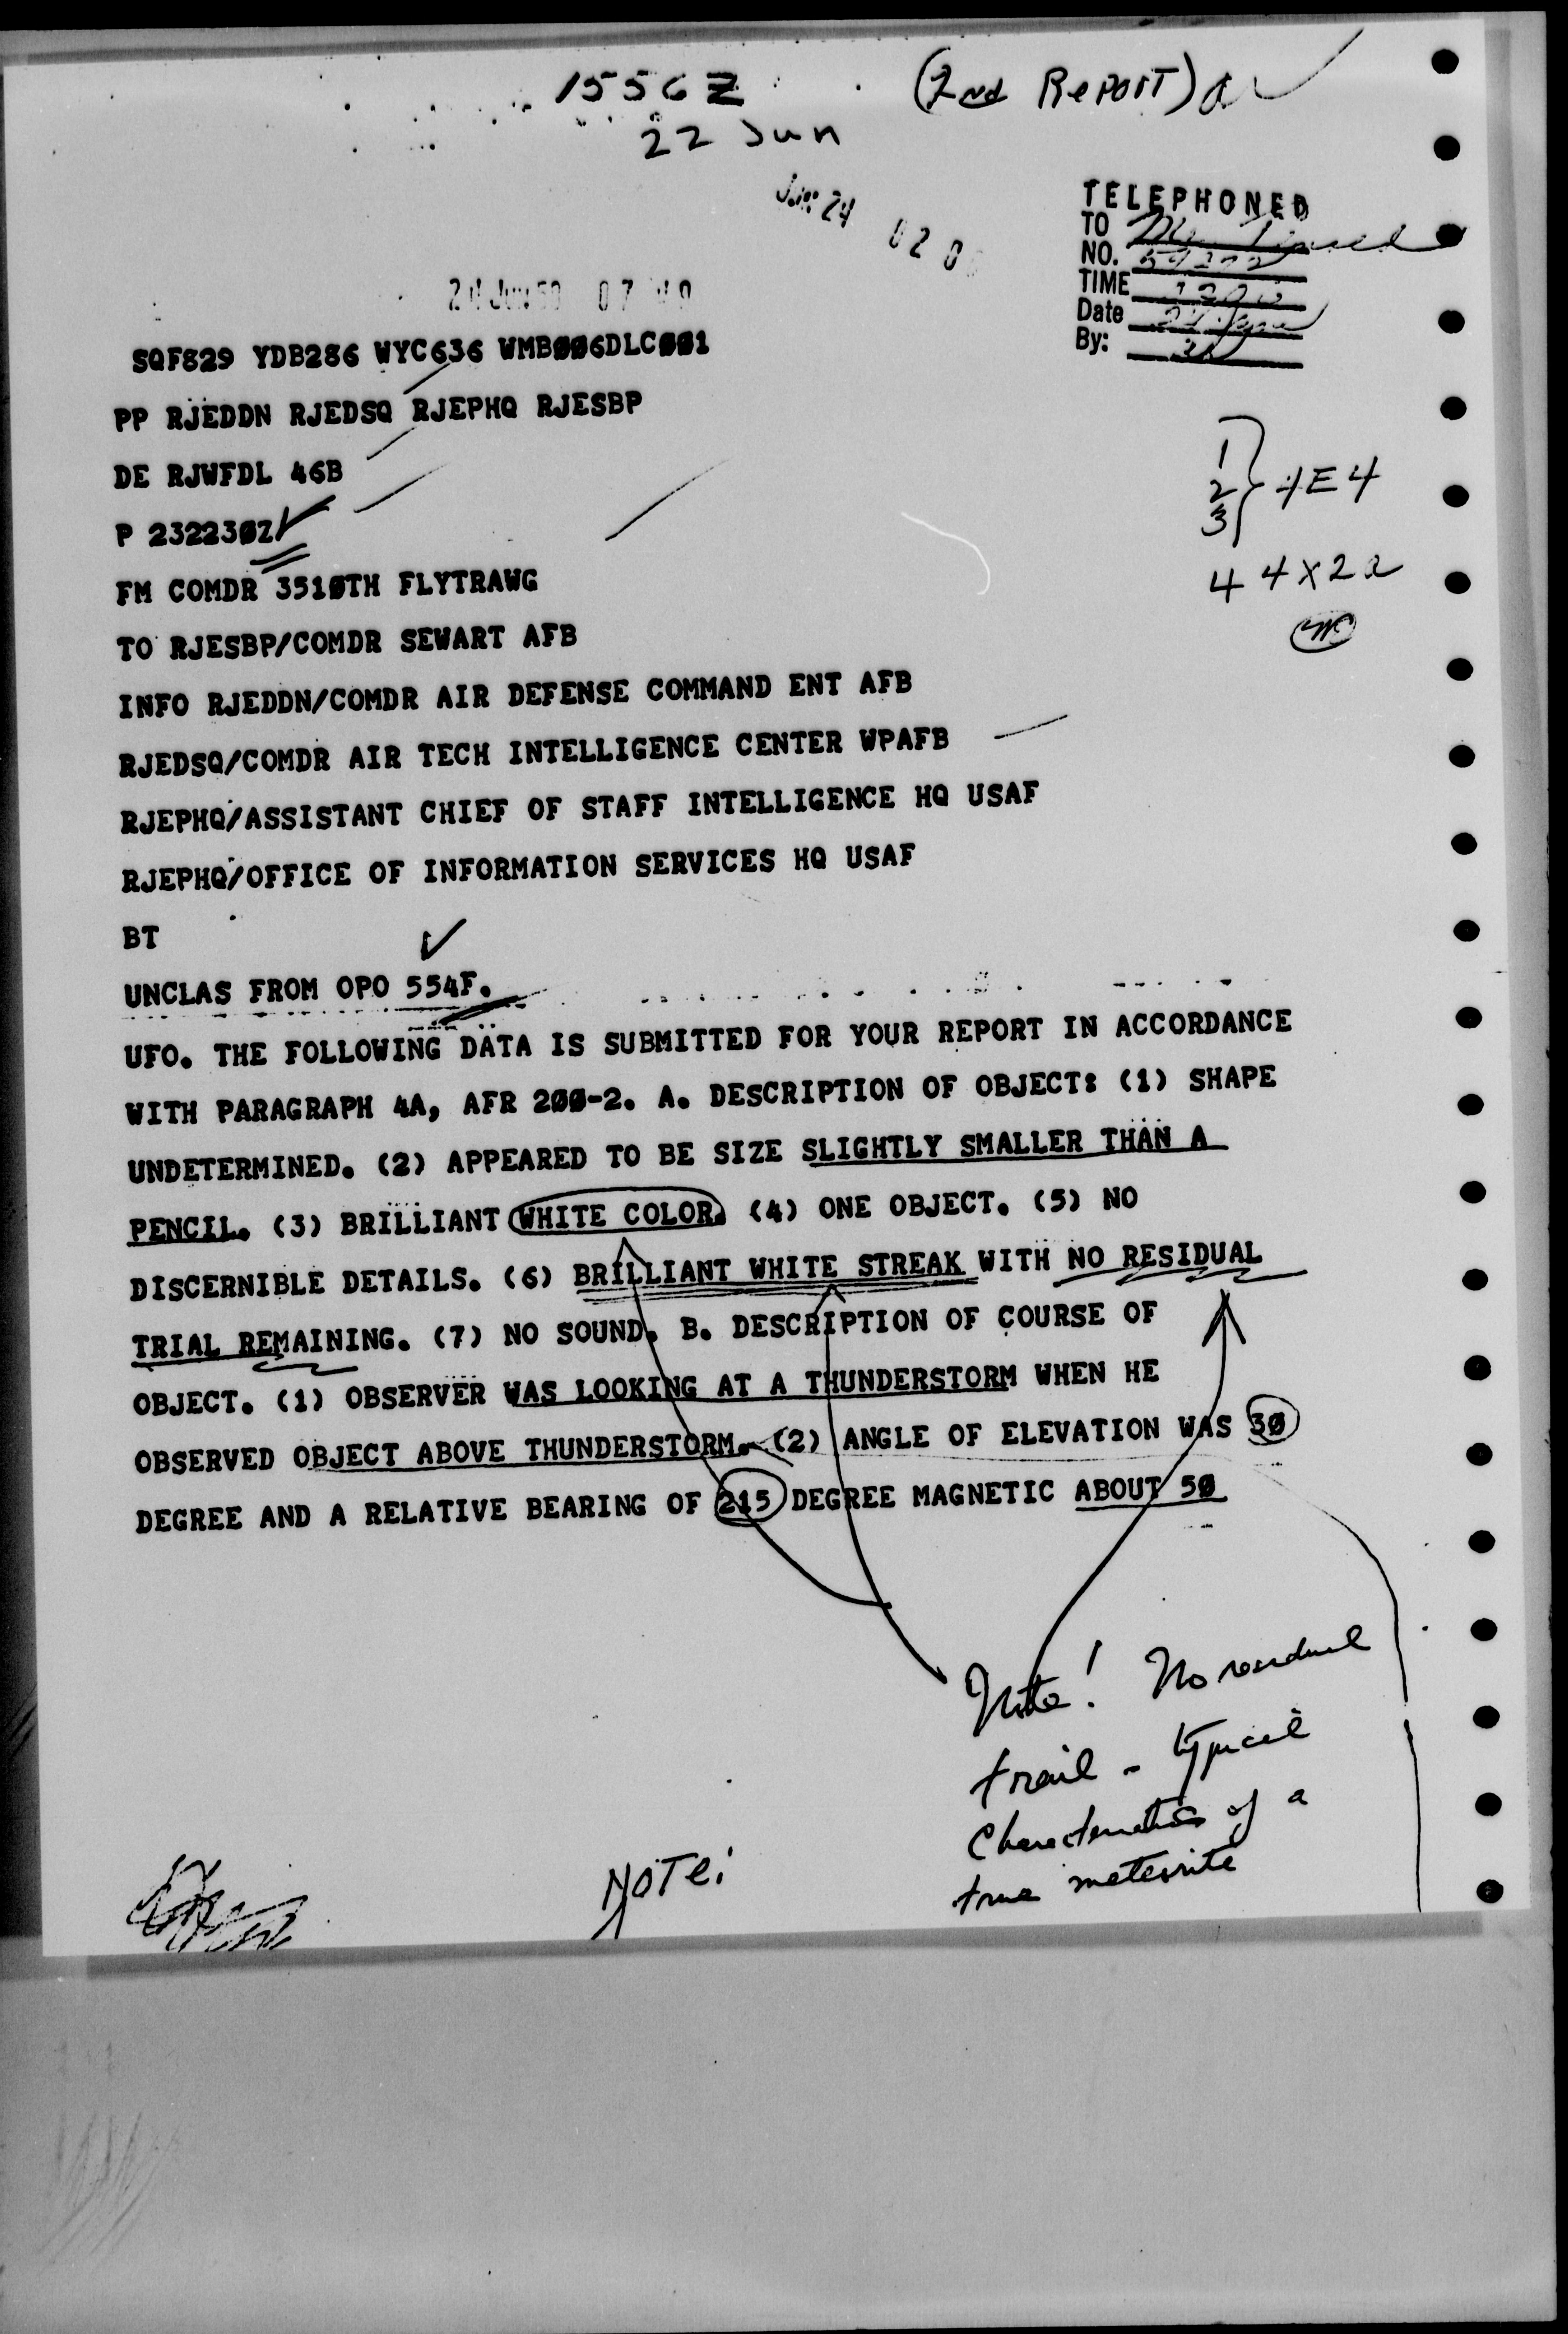 1556Z (2nd RePORT)
22 Jun
Jun 24 020
24 JUN 59 07 40
TELEPHONED
TO
NO.
TIME
Date
By:
SQF829 YDB286 WYC636 WMB006DLC001
PP RJEDDN RJEDSQ RJEPHQ RJESBP
DE RJWFDL 46B
P 232230Z
FM COMDR 3510TH FLYTRAWG
TO RJESBP/COMDR SEWART AFB
INFO RJEDDN/COMDR AIR DEFENSE COMMAND ENT AFB
RJEDSQ/COMDR AIR TECH INTELLIGENCE CENTER WPAFB
RJEPHQ/ASSISTANT CHIEF OF STAFF INTELLIGENCE HQ USAF
RJEPHQ/OFFICE OF INFORMATION SERVICES HQ USAF
1
2 } 4E4
3
4 4X2a
BT
UNCLAS FROM OPO 554F.
UFO. THE FOLLOWING DATA IS SUBMITTED FOR YOUR REPORT IN ACCORDANCE
WITH PARAGRAPH 4A, AFR 200-2. A. DESCRIPTION OF OBJECT: (1) SHAPE
UNDETERMINED. (2) APPEARED TO BE SIZE SLIGHTLY SMALLER THAN A
PENCIL. (3) BRILLIANT WHITE COLOR. (4) ONE OBJECT. (5) NO
DISCERNIBLE DETAILS. (6) BRILLIANT WHITE STREAK WITH NO RESIDUAL
TRIAL REMAINING. (7) NO SOUND. B. DESCRIPTION OF COURSE OF
OBJECT. (1) OBSERVER WAS LOOKING AT A THUNDERSTORM WHEN HE
OBSERVED OBJECT ABOVE THUNDERSTORM. (2) ANGLE OF ELEVATION WAS 30
DEGREE AND A RELATIVE BEARING OF 215 DEGREE MAGNETIC ABOUT 50
Note! No residual
trail - typical
characteristics of a
true meteorite
NOTe: